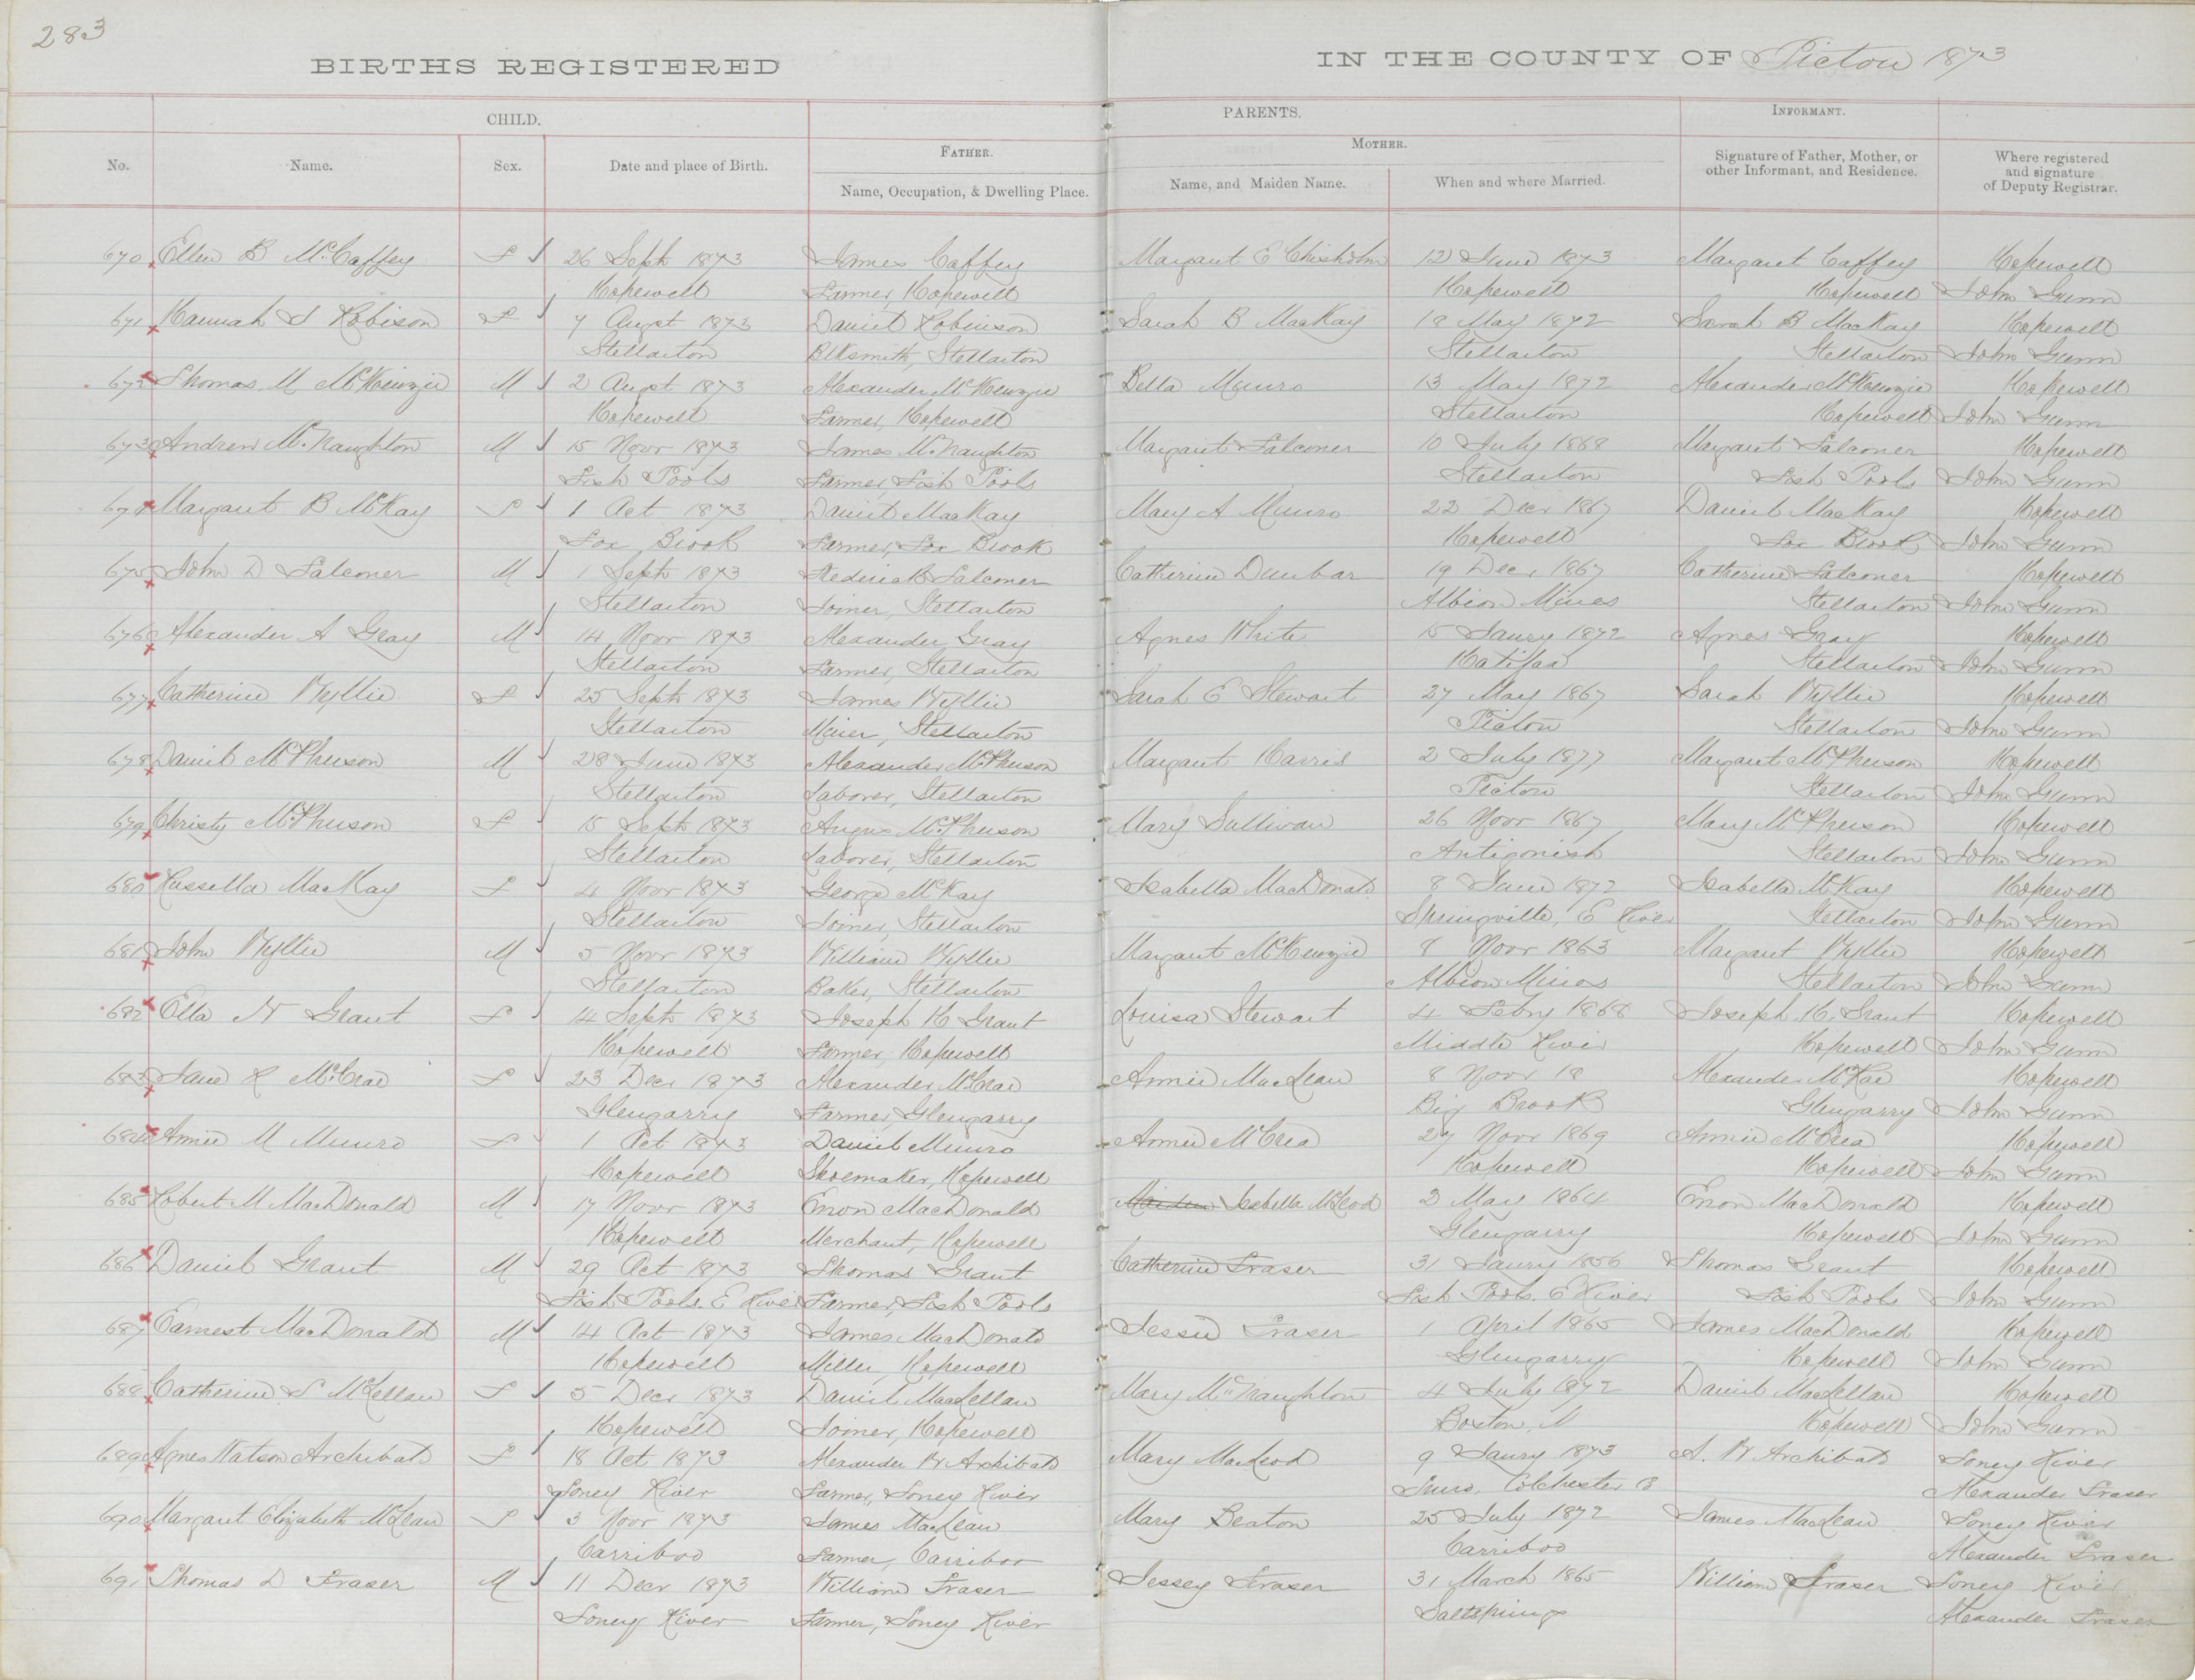 283
BIRTHS REGISTERED IN THE COUNTY OF Pictou 1873
CHILD. PARENTS. INFORMANT.
FATHER. MOTHER.
No. Name. Sex. Date and place of Birth. Name, Occupation, & Dwelling Place. Name, and Maiden Name. When and where Married. Signature of Father, Mother, or other Informant, and Residence. Where registered and signature of Deputy Registrar.
670 Ellen B McCaffey F 26 Sept 1873 James Caffey Margaret E Chisholm 12 June 1873 Margaret Caffey Hopewell
Hopewell Farmer, Hopewell Hopewell Hopewell John Gunn
671 Hannah J Robison F 7 Augt 1873 Daniel Robinson Sarah B MacKay 18 May 1872 Sarah B MacKay Hopewell
Stellarton Blksmith, Stellarton Stellarton Stellarton John Gunn
672 Thomas M McKenzie M 2 Augt 1873 Alexander McKenzie Bella Munro 13 May 1872 Alexander McKenzie Hopewell
Hopewell Farmer, Hopewell Stellarton Hopewell John Gunn
673 Andrew McNaughton M 15 Novr 1873 James McNaughton Margaret Falconer 10 July 1868 Margaret Falconer Hopewell
Fish Pools Farmer, Fish Pools Stellarton Fish Pools John Gunn
674 Margaret B McKay F 1 Oct 1873 Daniel MacKay Mary A Munro 22 Decr 1867 Daniel MacKay Hopewell
Fox Brook Farmer, Fox Brook Hopewell Fox Brook John Gunn
675 John D Falconer M 1 Sept 1873 Frederick Falconer Catherine Dunbar 19 Decr 1867 Catherine Falconer Hopewell
Stellarton Joiner, Stellarton Albion Mines Stellarton John Gunn
676 Alexander A Gray M 14 Novr 1873 Alexander Gray Agnes White 15 Jaury 1872 Agnes Gray Hopewell
Stellarton Farmer, Stellarton Halifax Stellarton John Gunn
677 Catherine Wyllie F 25 Sept 1873 James Wyllie Sarah E Stewart 27 May 1867 Sarah Wyllie Hopewell
Stellarton Miner, Stellarton Pictou Stellarton John Gunn
678 Daniel McPherson M 28 June 1873 Alexander McPherson Margaret Harris 2 July 1877 Margaret McPherson Hopewell
Stellarton Laborer, Stellarton Pictou Stellarton John Gunn
679 Christy McPherson F 15 Sept 1873 Angus McPherson Mary Sullivan 26 Novr 1867 Mary McPherson Hopewell
Stellarton Laborer, Stellarton Antigonish Stellarton John Gunn
680 Russella MacKay F 4 Novr 1873 George McKay Isabella MacDonald 8 June 1872 Isabella McKay Hopewell
Stellarton Joiner, Stellarton Springville, E River Stellarton John Gunn
681 John Wyllie M 5 Novr 1873 William Wyllie Margaret McKenzie 8 Novr 1863 Margaret Wyllie Hopewell
Stellarton Baker, Stellarton Albion Mines Stellarton John Gunn
682 Ella N Grant F 14 Sept 1873 Joseph H Grant Louisa Stewart 4 Febry 1868 Joseph H. Grant Hopewell
Hopewell Farmer, Hopewell Middle River Hopewell John Gunn
683 Jane R McCrae F 23 Decr 1873 Alexander McCrae Annie MacLean 8 Novr 18 Alexander McRae Hopewell
Glengarry Farmer, Glengarry Big Brook Glengarry John Gunn
684 Annie M Munro F 1 Oct 1873 Daniel Munro Annie McCrea 27 Novr 1869 Annie McCrea Hopewell
Hopewell Shoemaker, Hopewell Hopewell Hopewell John Gunn
685 Robert M MacDonald M 17 Novr 1873 Enon MacDonald Maiden Isabella McLeod 2 May 1864 Enon MacDonald Hopewell
Hopewell Merchant, Hopewell Glengarry Hopewell John Gunn
686 Daniel Grant M 29 Oct 1873 Thomas Grant Catherine Fraser 31 Jaury 1856 Thomas Grant Hopewell
Fish Pools. E River Farmer, Fish Pools Fish Pools. E River Fish Pools John Gunn
687 Earnest MacDonald M 14 Oct 1873 James MacDonald Jessie Fraser 1 April 1865 James MacDonald Hopewell
Hopewell Miller, Hopewell Glengarry Hopewell John Gunn
688 Catherine S McLellan F 5 Decr 1873 Daniel MacLellan Mary McNaughton 4 July 1872 Daniel MacLellan Hopewell
Hopewell Joiner, Hopewell Boston, M Hopewell John Gunn
689 Agnes Watson Archibald F 18 Oct 1873 Alexander W Archibald Mary MacLeod 9 Jaury 1873 A. W Archibald Toney River
Toney River Farmer, Toney River Truro, Colchester Co Alexander Fraser
690 Margaret Elizabeth McLean F 3 Novr 1873 James MacLean Mary Beaton 25 July 1872 James MacLean Toney River
Carriboo Farmer, Carriboo Carriboo Alexander Fraser
691 Thomas D Fraser M 11 Decr 1873 William Fraser Jessey Fraser 31 March 1865 William Fraser Toney River
Toney River Farmer, Toney River Saltsprings Alexander Fraser